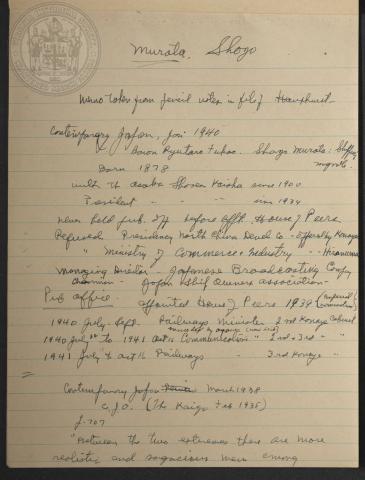 Murata, Shogo
Memo taken from pencil notes in file of
Contemporary Japan, Jan 1940
Baron Ryutaro Fukao. Shogo Murata: Shipping
magnate.
Born 1878
with the Osaka Shosen Kaisha since 1900
President " " " since 1934
never held pub. off before appt. House of Peers
Refused Presidency North China Devel Co - offered by Konoye
" Ministry of Commerce + Industry " Hiranuma
managing Director - Japanese Broadcasting Compy
chairman - Japan Ship Owners Association -
Pub office. appointed House of Peers 1939
1940 July - Sept. Railways Minister 2nd Konoye Cabinet
1940 July to 1941 Oct 16 Communications " 2nd + 3rd " "
1941 July to Oct 16 Railways - 3rd Konoye "
=
Contemporary Japan March 1938
(The Kaizo Feb 1938)
p. 707
"Between the two extremes there are more
realistic and sagacious men among